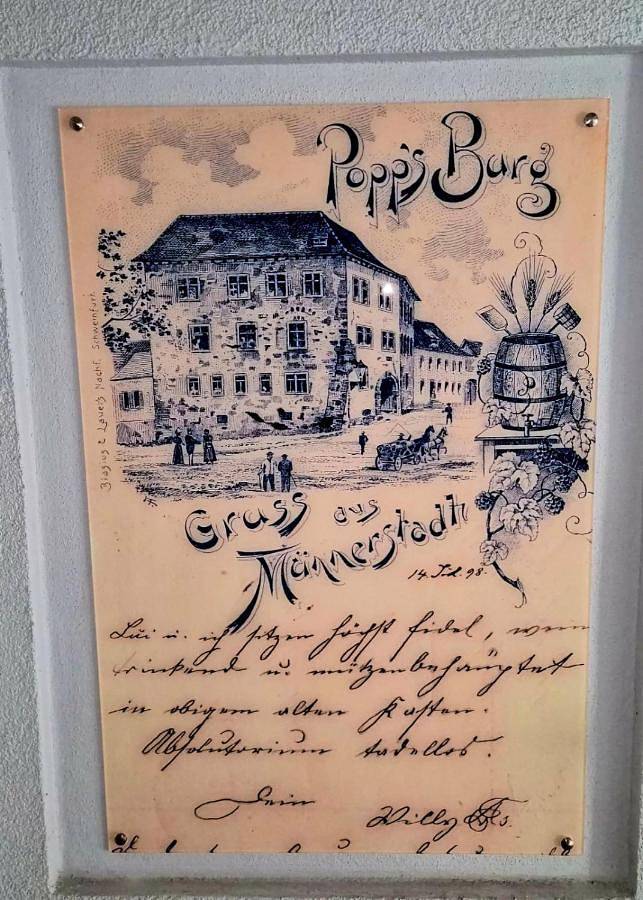 Popp's Burg
Blasius & Lauer's Nachf. Schweinfurt.
Gruss aus
Männerstadt
14. Jul. 98.
Lui u. ich sitzen höchst fidel, wein
trinkend u. mützenbehauptet
in obigem alten Kasten.
Absolutorium tadellos.
Dein Willy